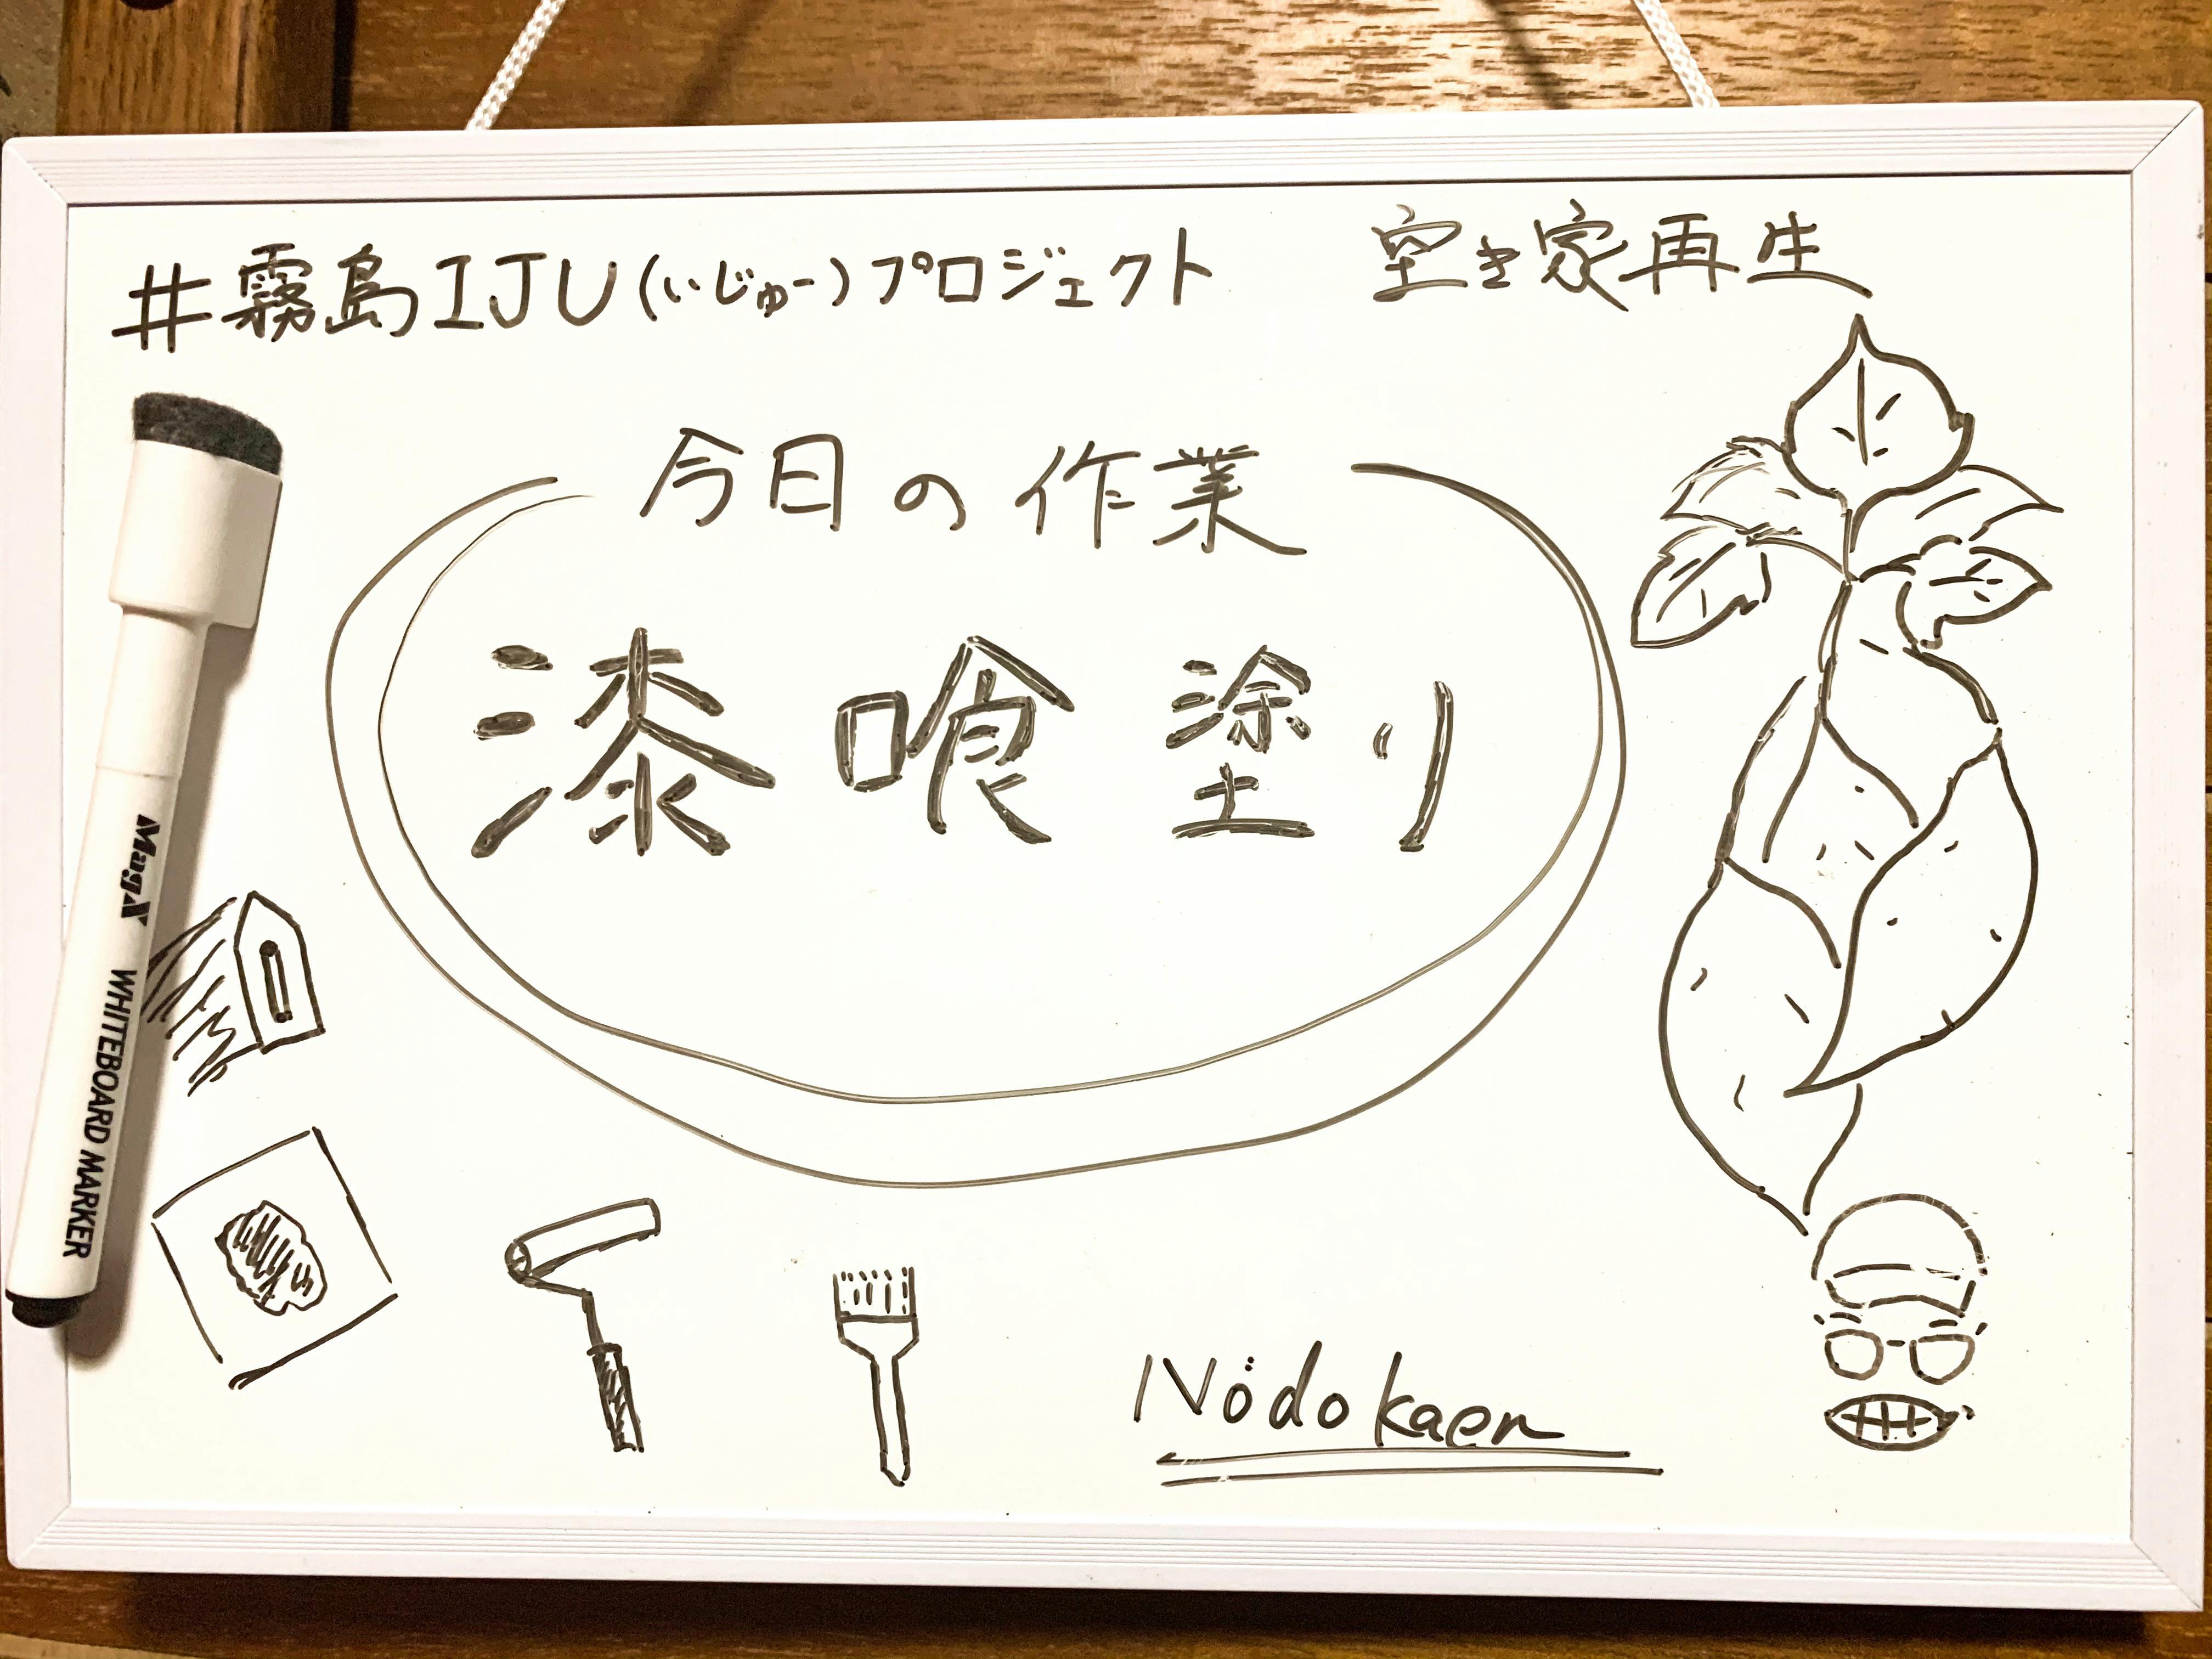 #霧島IJU(いじゅー)プロジェクト 空き家再生
今日の作業
漆喰塗り
MagX WHITEBOARD MARKER
Nödokaen